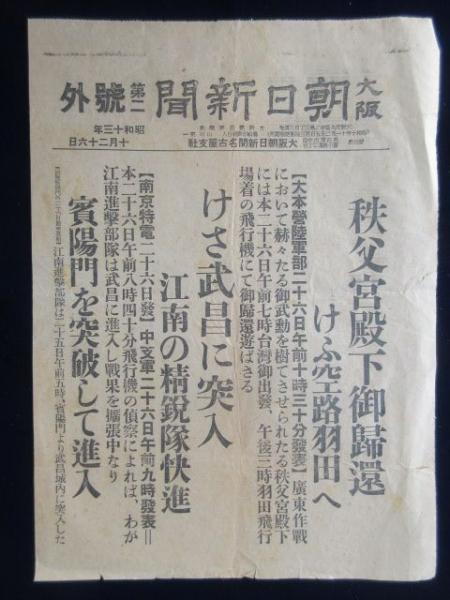 大阪朝日新聞 第二號外
昭和十三年
十月二十六日
大阪朝日新聞名古屋支社
秩父宮殿下御歸還
けふ空路羽田へ
【大本營陸軍部二十六日午前十時三十分發表】廣東作戰
において赫々たる御武勳を樹てさせられたる秩父宮殿下
には本二十六日午前七時台灣御出發、午後三時羽田飛行
場着の飛行機にて御歸還遊ばさる
けさ武昌に突入
江南の精鋭隊快進
【南京特電二十六日發】中支軍二十六日午前九時發表＝
本二十六日午前八時四十分飛行機の偵察によれば、わが
江南進擊部隊は武昌に進入し戰果を擴張中なり
賓陽門を突破して進入
江南進擊部隊は二十五日午前五時、賓陽門より武昌城内に突入した